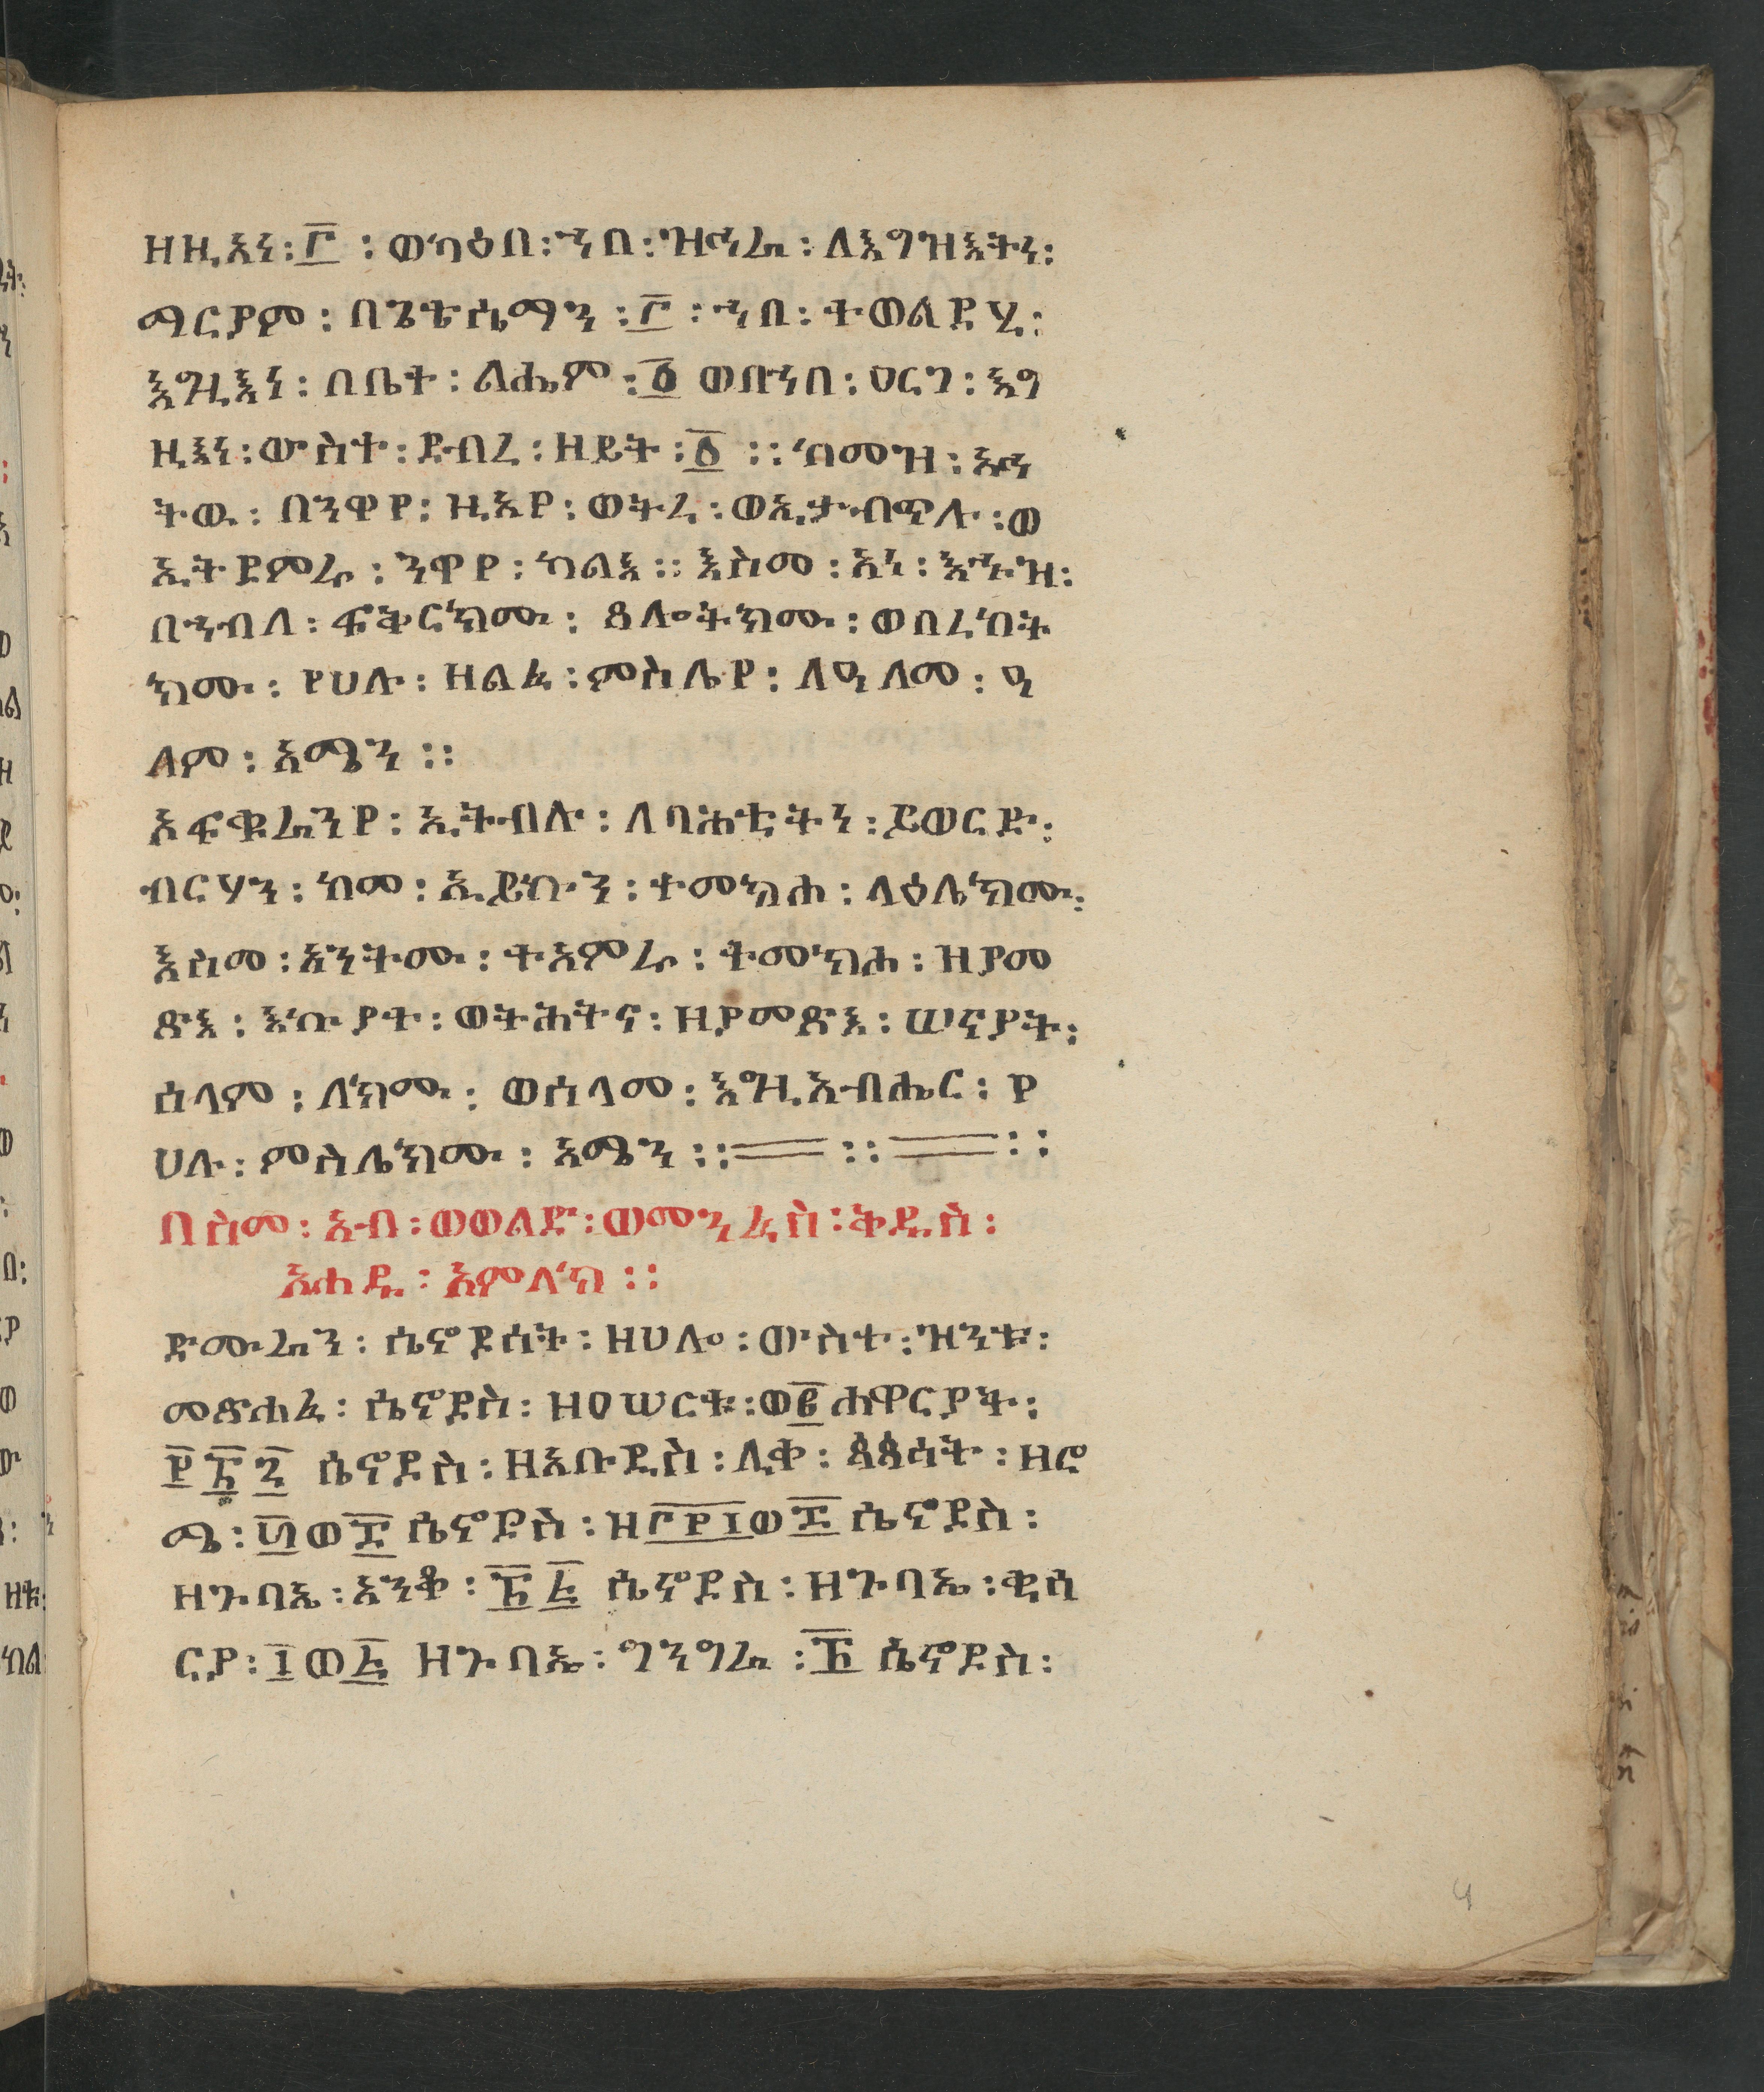 ዘዚአነ፡፫፡ወካዕበ፡ኀበ፡ዝኅሬ፡ለእግዝእትነ፡
ማርያም፡በጌቴሴማን፡፫፡ኀበ፡ተወልደ፡ሂ፡
እግዚእነ፡በቤተ፡ልሔም፡፩ወበኀበ፡ዐርገ፡እግ
ዚእነ፡ውስተ፡ደብረ፡ዘይት፡፩።ከመዝ፡አኀ
ትዉ፡በንዋየ፡ዚአየ፡ወትረ፡ወኢታብጥሉ፡ወ
ኢትደምሩ፡ንዋየ፡ካልእ።እስመ፡አነ፡እኁዝ፡
በኀብለ፡ፍቅርክሙ፡ጸሎትክሙ፡ወበረከት
ክሙ፡የሀሉ፡ዘልፈ፡ምስሌየ፡ለዓለመ፡ዓ
ለም፡አሜን።
አፍቁራንየ፡ኢትብሉ፡ለባሕቲትነ፡ይወርድ፡
ብርሃን፡ከመ፡ኢይኩን፡ተመክሐ፡ላዕሌክሙ፡
እስመ፡አንትሙ፡ተአምሩ፡ተመክሐ፡ዘያመ
ጽእ፡እኩያተ፡ወትሕትና፡ዘያመጽእ፡ሠናያት፡
ሰላም፡ለክሙ፡ወሰላመ፡እግዚአብሔር፡የ
ሀሉ፡ምስሌክሙ፡አሜን።።።
በስመ፡አብ፡ወወልድ፡ወመንፈስ፡ቅዱስ፡
አሐዱ፡አምላክ።
ድሙራን፡ሴኖዶሳት፡ዘሀሎ፡ውስተ፡ዝንቱ፡
መጽሐፈ፡ሴኖዶስ፡ዘዐሠርቱ፡ወ፪ሐዋርያት፡
ሴኖዶስ፡ዘአቡዲስ፡ሊቀ፡ጳጳሳት፡ዘሮ
ሜ፡፴ወ፰ሴኖዶስ፡ዘ፫፻፲ወ፰ሴኖዶስ፡
ዘጉባኤ፡አንቆ፡፳፭ሴኖዶስ፡ዘጉባኤ፡ቂሳ
ርያ፡፲ወ፭ዘጉባኤ፡ግንግራ፡፳ሴኖዶስ፡